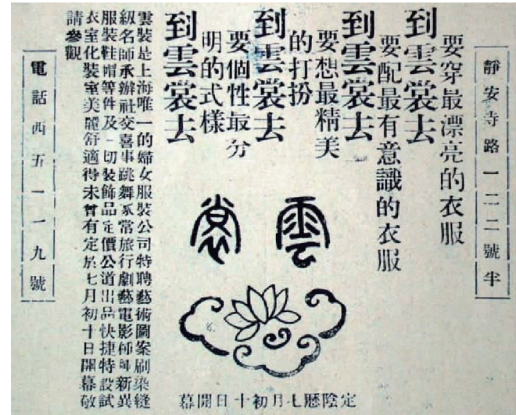 靜安寺路一二二號半
要穿最漂亮的衣服
到雲裳去
要配最有意識的衣服
到雲裳去
要想最精美
的打扮
到雲裳去
要個性最分
明的式樣
到雲裳去
雲裳
定陰歷七月初十日開幕
雲裳是上海唯一的婦女服裝公司特聘藝術圖案刷染縫
級名師承辦社交喜事跳舞家常旅行劇藝電影種種新異
服裝鞋帽等件及一切裝飾品定價公道出品快捷特設試
衣室化裝室美麗舒適得未曾有定於七月初十日開幕敬
請參觀
電話西五一一九號